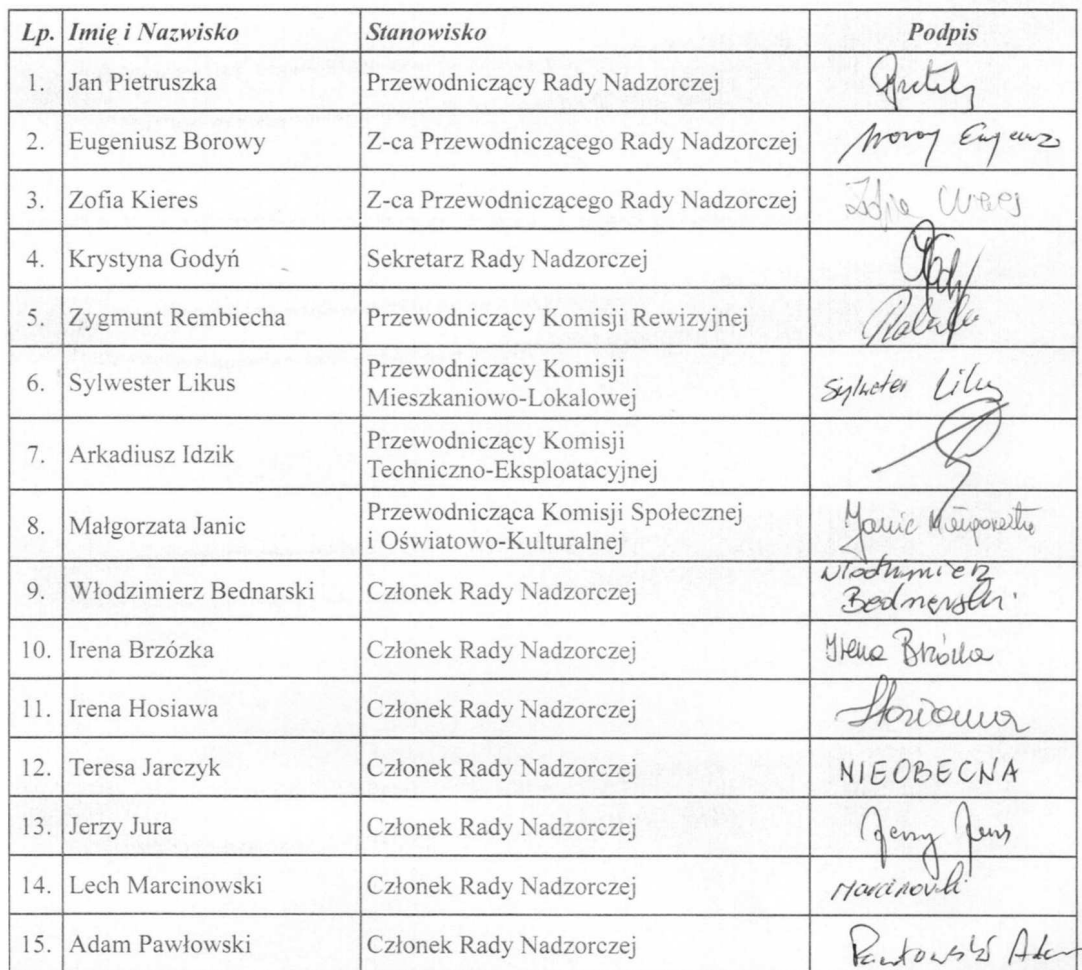 Lp. Imię i Nazwisko Stanowisko Podpis
1. Jan Pietruszka Przewodniczący Rady Nadzorczej
2. Eugeniusz Borowy Z-ca Przewodniczącego Rady Nadzorczej
3. Zofia Kieres Z-ca Przewodniczącego Rady Nadzorczej Zofia
4. Krystyna Godyń Sekretarz Rady Nadzorczej
5. Zygmunt Rembiecha Przewodniczący Komisji Rewizyjnej
6. Sylwester Likus Przewodniczący Komisji
Mieszkaniowo-Lokalowej Sylwester Likus
7. Arkadiusz Idzik Przewodniczący Komisji
Techniczno-Eksploatacyjnej
8. Małgorzata Janic Przewodnicząca Komisji Społecznej
i Oświatowo-Kulturalnej Janic Małgorzata
9. Włodzimierz Bednarski Członek Rady Nadzorczej Włodzimierz
Bednarski
10. Irena Brzózka Członek Rady Nadzorczej Irena Brzózka
11. Irena Hosiawa Członek Rady Nadzorczej Hosiawa
12. Teresa Jarczyk Członek Rady Nadzorczej NIEOBECNA
13. Jerzy Jura Członek Rady Nadzorczej Jerzy Jura
14. Lech Marcinowski Członek Rady Nadzorczej Marcinowski
15. Adam Pawłowski Członek Rady Nadzorczej Pawłowski Adam